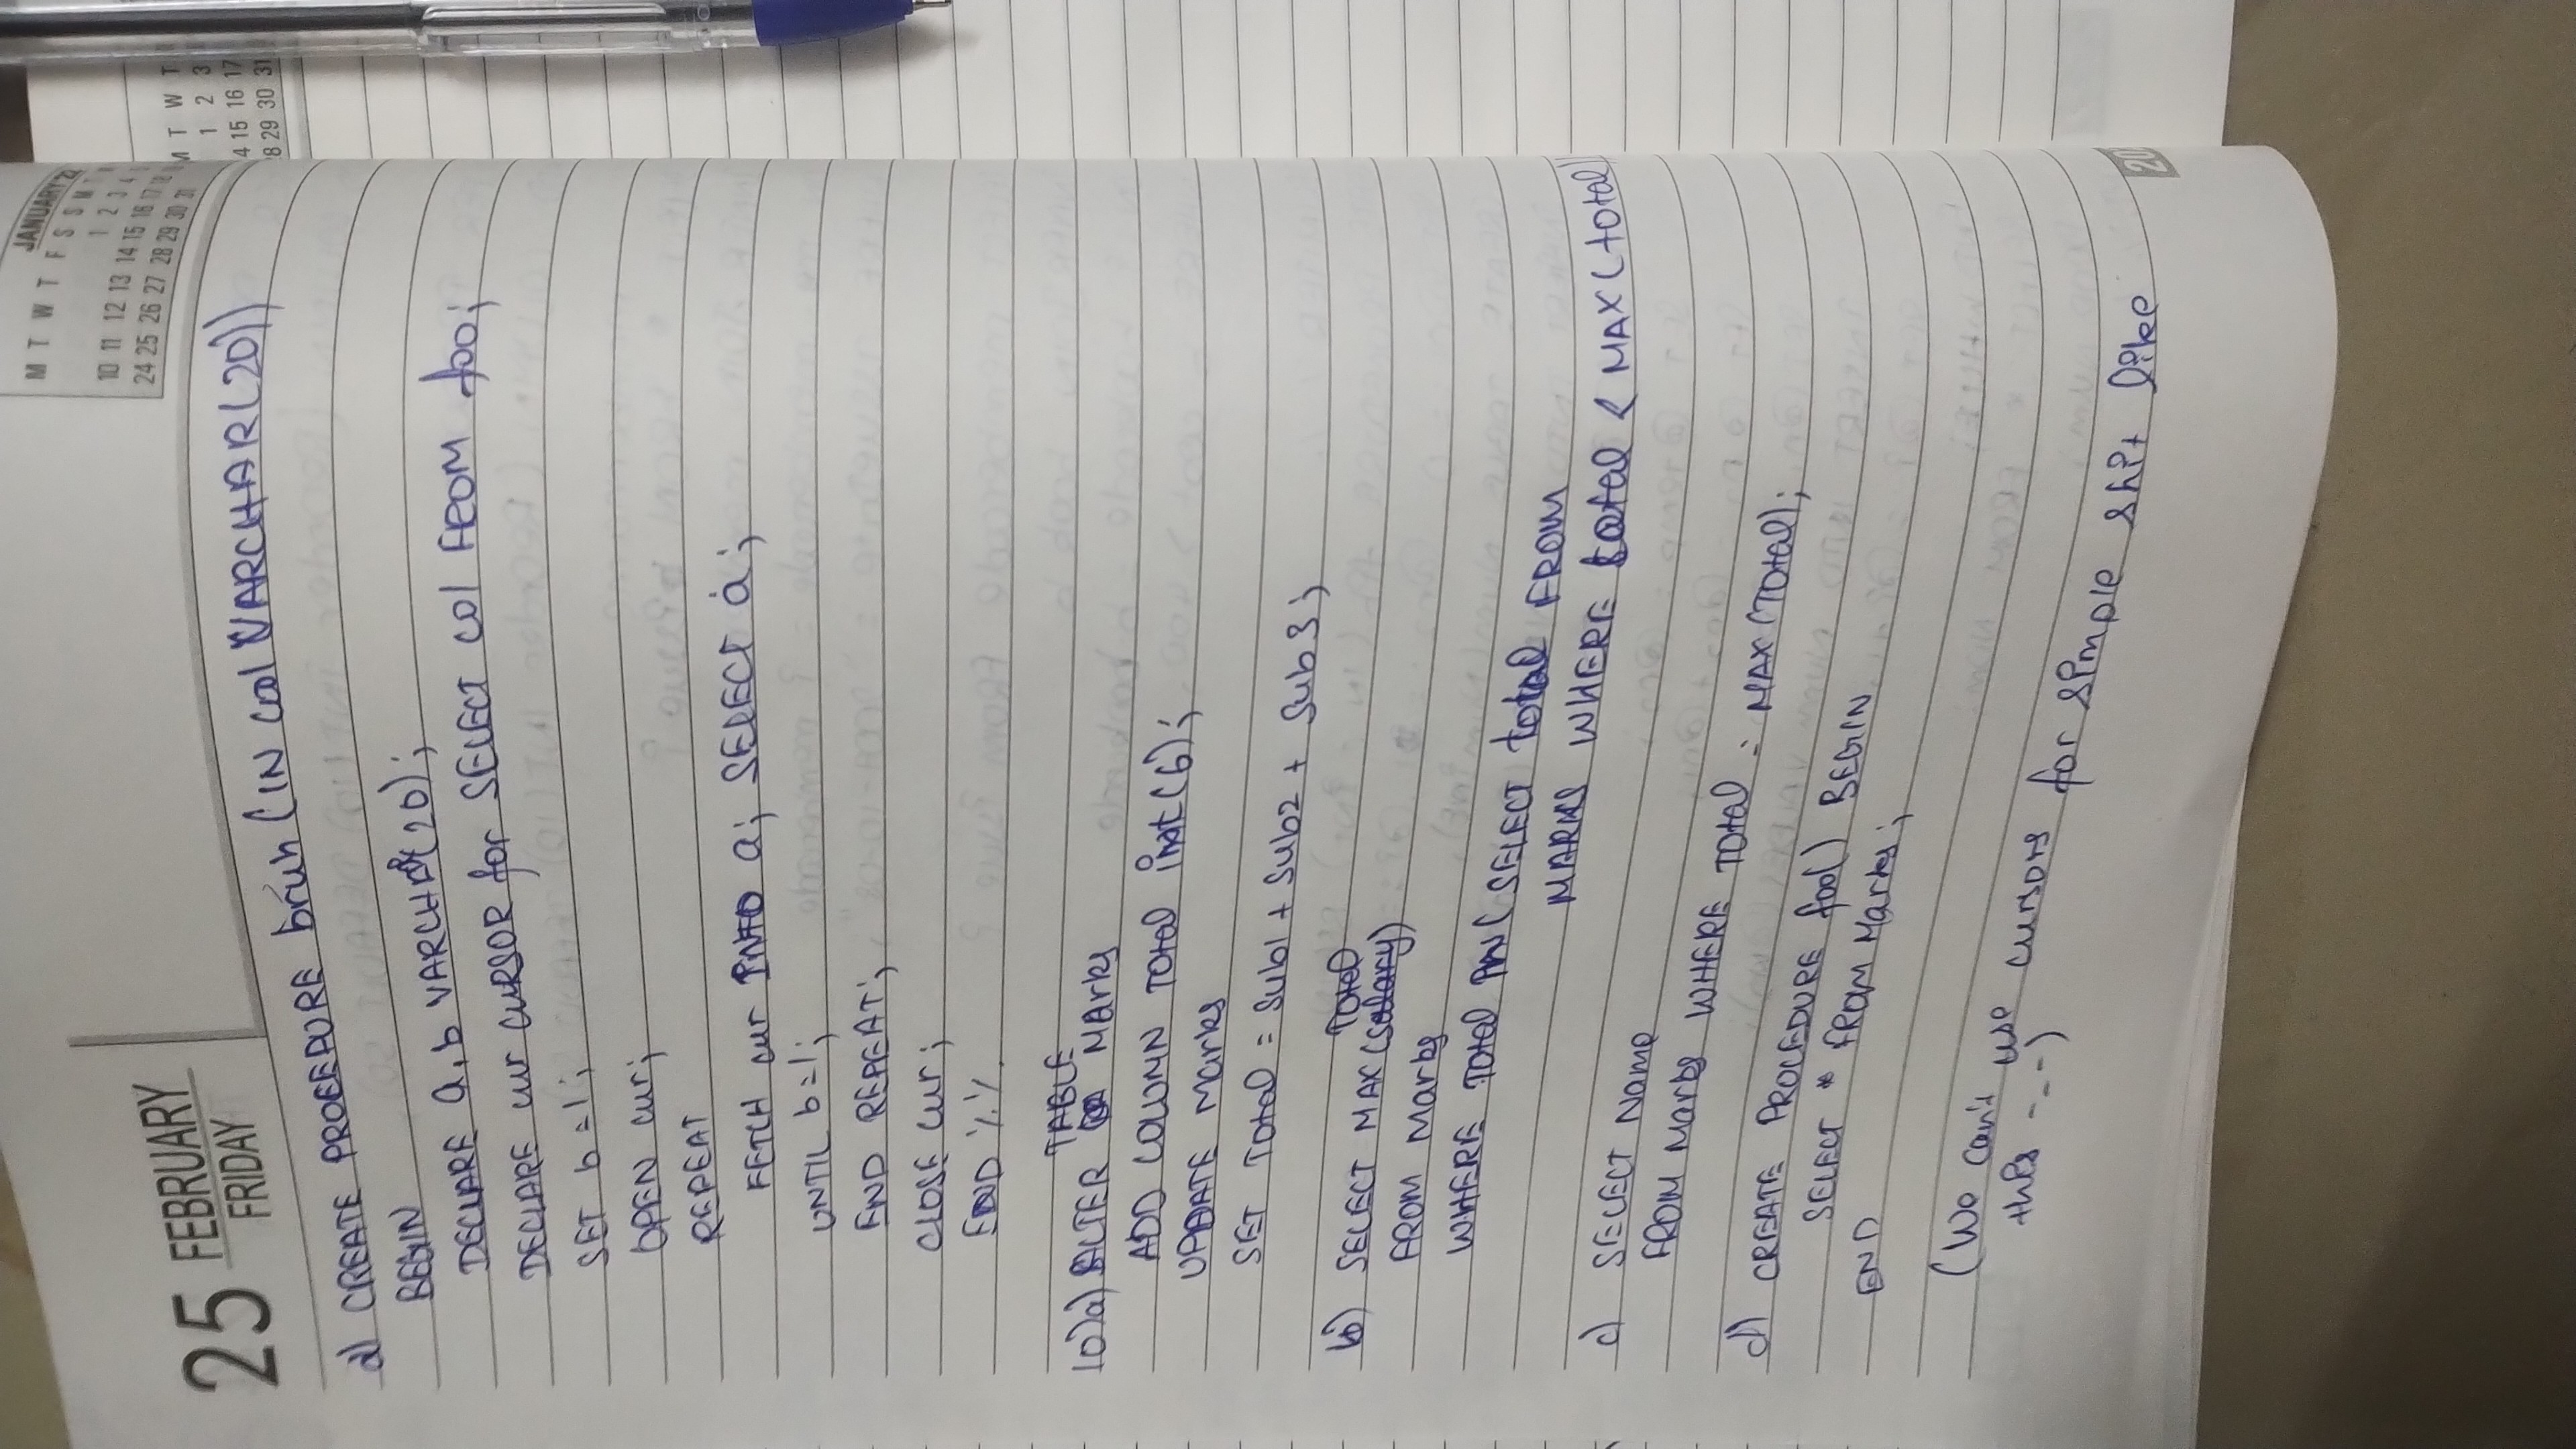 JANUARY'22
M T W T F S S M T
1 2 3 4
10 11 12 13 14 15 16 17 18
24 25 26 27 28 29 30 31
M T W T
1 2 3
4 15 16 17
28 29 30 31
25 FEBRUARY
FRIDAY
d) CREATE PROCEDURE bruh (IN col VARCHAR(20))
BEGIN
DECLARE a, b VARCHAR(20);
DECLARE cur CURSOR for SELECT col FROM foo;
SET b=1;
OPEN cur;
REPEAT
FETCH cur INTO a; SELECT a;
UNTIL b=1;
END REPEAT;
CLOSE cur;
END %%
10)a) ALTER TABLE Marks
ADD COLUMN Total int(6);
UPDATE Marks
SET Total = Sub1 + Sub2 + Sub3;
b) SELECT MAX(Total)
FROM Marks
WHERE Total IN (SELECT total FROM
MARKS WHERE total < MAX(total))
c) SELECT Name
FROM Marks WHERE Total = MAX(Total);
d) CREATE PROCEDURE foo() BEGIN
SELECT * FROM Marks;
END
(We can't use cursors for simple shit like
this -_-)
20